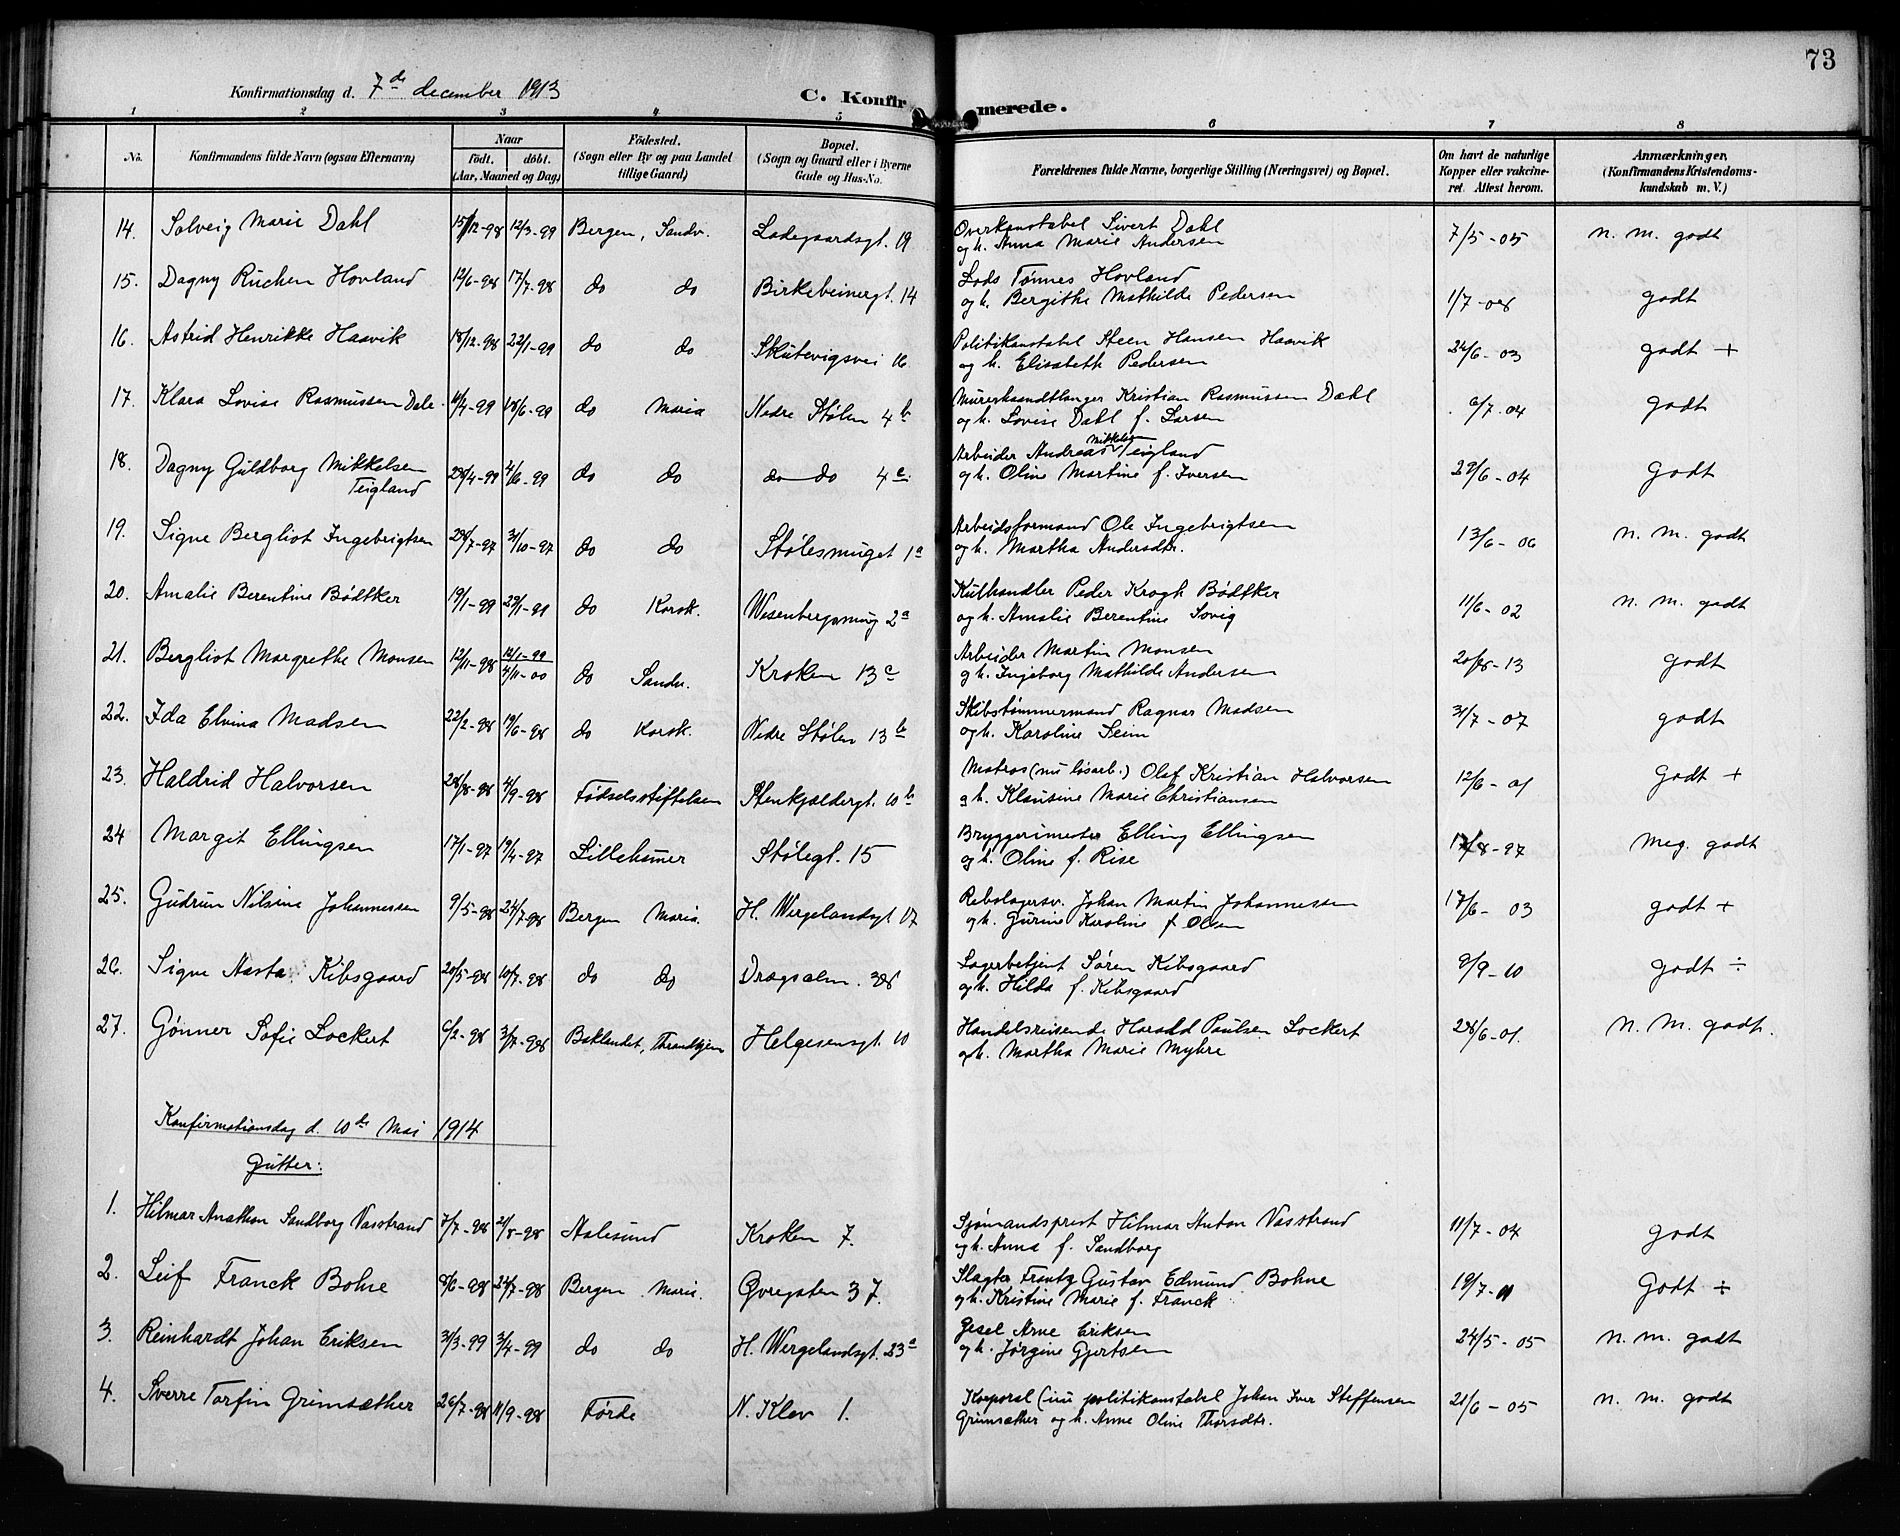 73
Konfirmationsdag d. 7de december 1913
C. Konfirmerede.
1 2 3 4 5 6 7 8
No.
Konfirmandens fulde Navn (ogsaa Efternavn)
Naar
født. døbt.
(Aar, Maaned og Dag)
Fødested.
(Sogn eller By og paa Landet
tillige Gaard)
Bopæl.
(Sogn og Gaard eller i Byerne
Gade og Hus-No.
Forældrenes fulde Navne, borgerlige Stilling (Næringsvei) og Bopæl.
Om havt de naturlige
Kopper eller vakcine-
ret. Attest herom.
Anmærkninger,
(Konfirmandens Kristendoms-
kundskab m. V.)
14. Solveig Marie Dahl 15/12-98 12/3-99 Bergen, Sandv. Ladegaardsgt. 19 Overkonstabel Sivert Dahl 7/5-05 n. m. godt
og h. Anna Marie Andersen
15. Dagny Ruchen Hovland 12/6-98 17/7-98 do do Birkebeinergt. 14 Lods Tønnes Hovland 1/7-08 godt
og h. Bergithe Mathilde Pedersen
16. Astrid Henrikke Haavik 18/12-98 22/1-99 do do Skutevigsvei 16 Politikonstabel Steen Hansen Haavik 24/6-03 godt +
og h. Elisabeth Pedersen
17. Klara Lovise Rasmussen Dale 11/4-99 18/6-99 do Maria Nedre Stølen 4b Murerhaandtlanger Kristian Rasmussen Dahl 6/7.04 godt
og h. Lovise Dahl f. Larsen
18. Dagny Guldborg Mikkelsen 28/4-99 4/6-99 do do do do 4c Arbeider Andreas Mikkelsen Teigland 29/6-04 godt
Teigland og h. Oline Martine f. Iversen
19. Signe Bergliot Ingebrigtsen 28/7-97 31/10-97 do do Stølesmuget 1a Arbeidsformand Ole Ingebrigtsen 13/6-06 n. m. godt
og h. Martha Andersdtr.
20. Amalie Berentine Bödtker 19/1-99 29/1-99 do Korsk. Wesenbergsmug 2a Kulhandler Peder Krogh Bødtker 11/6-02 n. m. godt
og h. Amalie Berentine Sovig
21. Bergliot Margrethe Monsen 12/11-98 12/1-99 Arbeider Martin Monsen 20/8-13 godt
4/11-00 do Sandv. Kroken 13c og h. Ingeborg Mathilde Andersen
22. Ida Elvina Madsen 22/2-98 19/6-98 do Korsk. Nedre Stølen 13b Skibstømmermand Ragnar Madsen 31/7-07 godt
og h. Karoline Seim
23. Haldrid Halvorsen 28/8-98 4/9-98 Fødselsstiftelsen Stenkjeldergt. 10b Matros (nu løsarb.) Olaf Kristian Halvorsen 12/6-01 godt +
og h. Klausine Marie Christiansen
24 Margit Ellingsen 17/1-97 19/4-97 Lillehamer Stølegt. 15 Bryggerimester Elling Ellingsen 17/8-97 Meg. godt
og h. Oline f. Rise
25. Gudrun Nilsine Johannessen 9/5-98 24/7-98 Bergen Maria. H. Wergelandsgt 17 Rebslagersv. Johan Martin Johannessen 17/6-03 godt +
og h. Gurine Karoline f Olsen
26. Signe Aasta Kibsgaard 20/5-98 10/7-98 do do Dragsalm. 38 Lagerbetjent Søren Kibsgaard 9/9-10 godt ÷
og h. Hilda f. Kibsgaard
27. Gønner Sofie Lockert 6/2-98 3/7-98 Baklandet, Thrandhjem Helgesensgt. 10 Handelsreisende Harald Paulsen Lockert 28/6-01. n. m. godt.
og h. Martha Marie Myhre
Konfirmationsdag d. 10de Mai 1914
Gutter:
1. Hilmar Anathon Sandborg Vasstrand 7/7-98 2/8-98 Aalesund Kroken 7. Sjømandsprest Hilmar Anton Vasstrand 11/7-04 godt
og h. Anna f. Sandborg
2. Leif Franck Bohne 8/6-98 24/7-98 Bergen Marie. Øvregaten 37. Slagter Frantz Gustav Edmund Bohne 19/7-11 Godt ÷
og h. Kristine Marie f. Franck
3. Reinhardt Johan Eriksen 31/3-99 3/4-99 do do H. Wergelandsgt. 23a Gesel Arne Eriksen 24/5-05 n. m. godt
og h. Jørgine Gjertsen
4. Sverre Torfin Grimsæther 26/7-98 11/9-98 Førde N. Klev 1. Korporal (nu politikonstabel Johan Iver Steffensen 21/6-05 n. m. godt
Grimsæther og h. Anne Oline Thorsdtr.